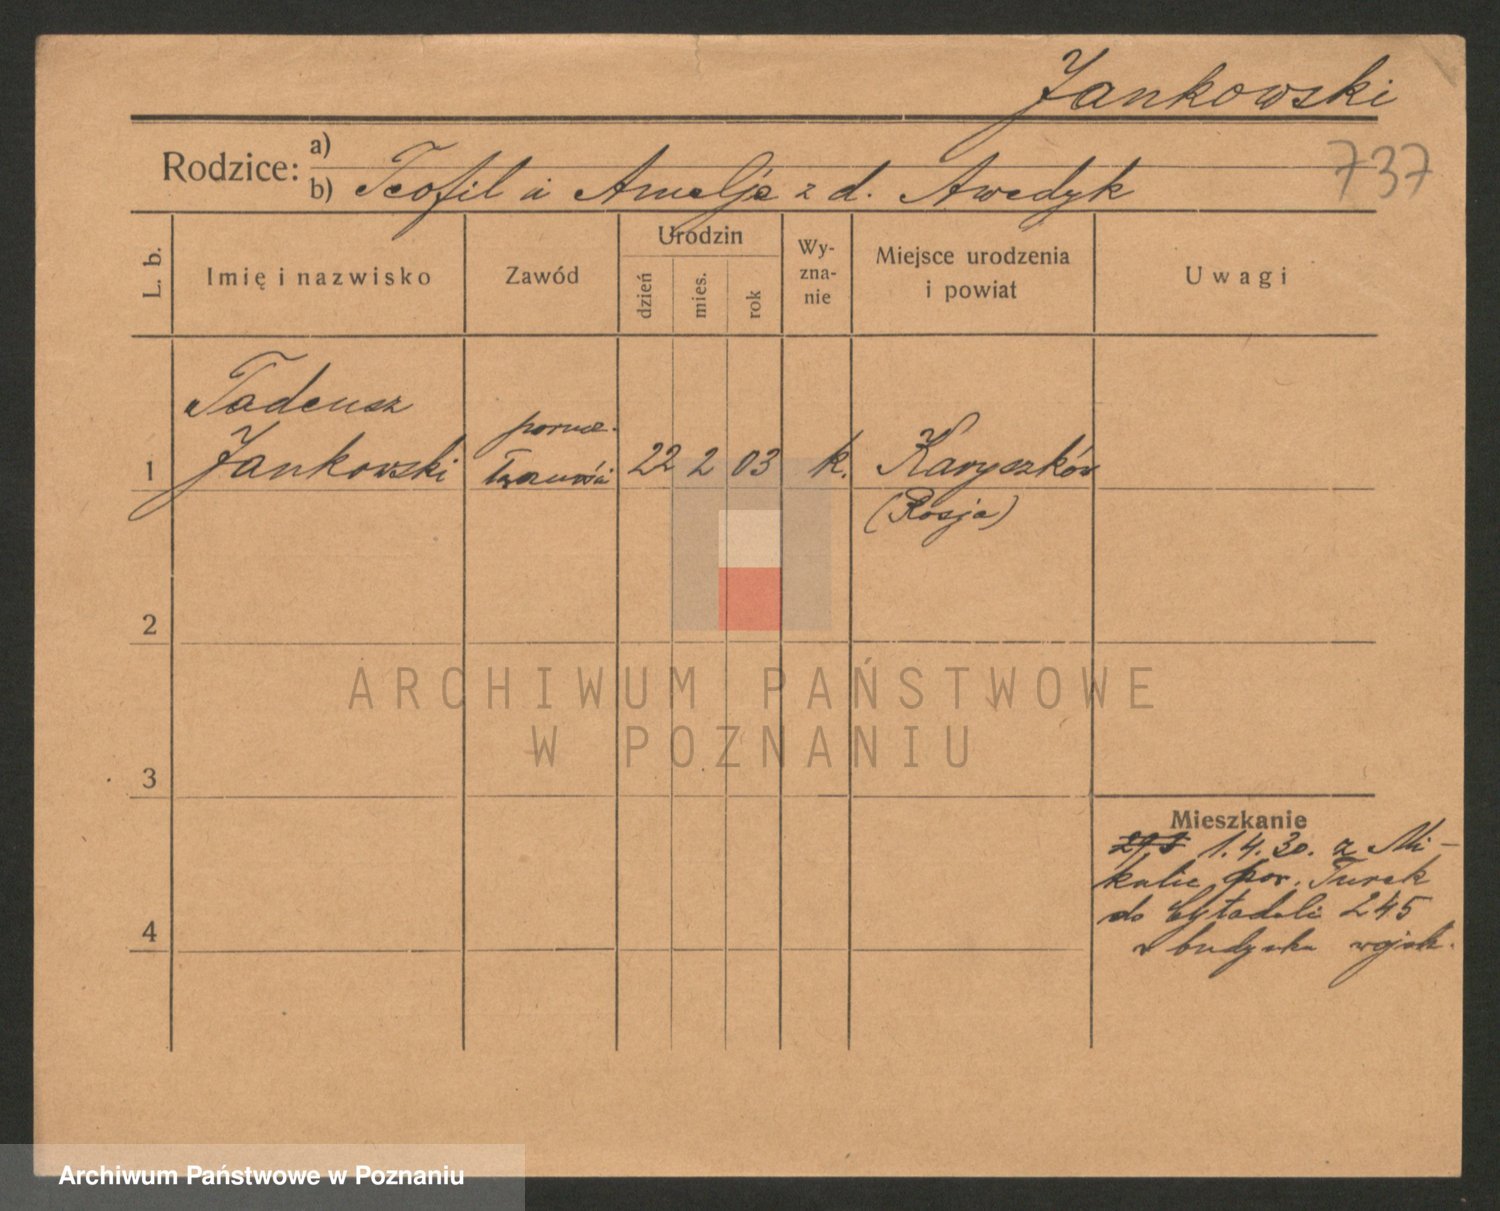 Jankowski
737
Rodzice: a)
b) Teofil i Amelja z d. Awedyk
L. b.
Imię i nazwisko
Zawód
Urodzin
dzień
mies.
rok
Wy-
zna-
nie
Miejsce urodzenia
i powiat
Uwagi
Tadeusz
1 Jankowski
porucz.
łączności
22 2 03 k. Karyszków
(Rosja)
2
3
4
Mieszkanie
1.4.30. z Mi-
kulic pow. Turek
do Cytadeli 245
w budynku wojsk.
ARCHIWUM PAŃSTWOWE
W POZNANIU
Archiwum Państwowe w Poznaniu